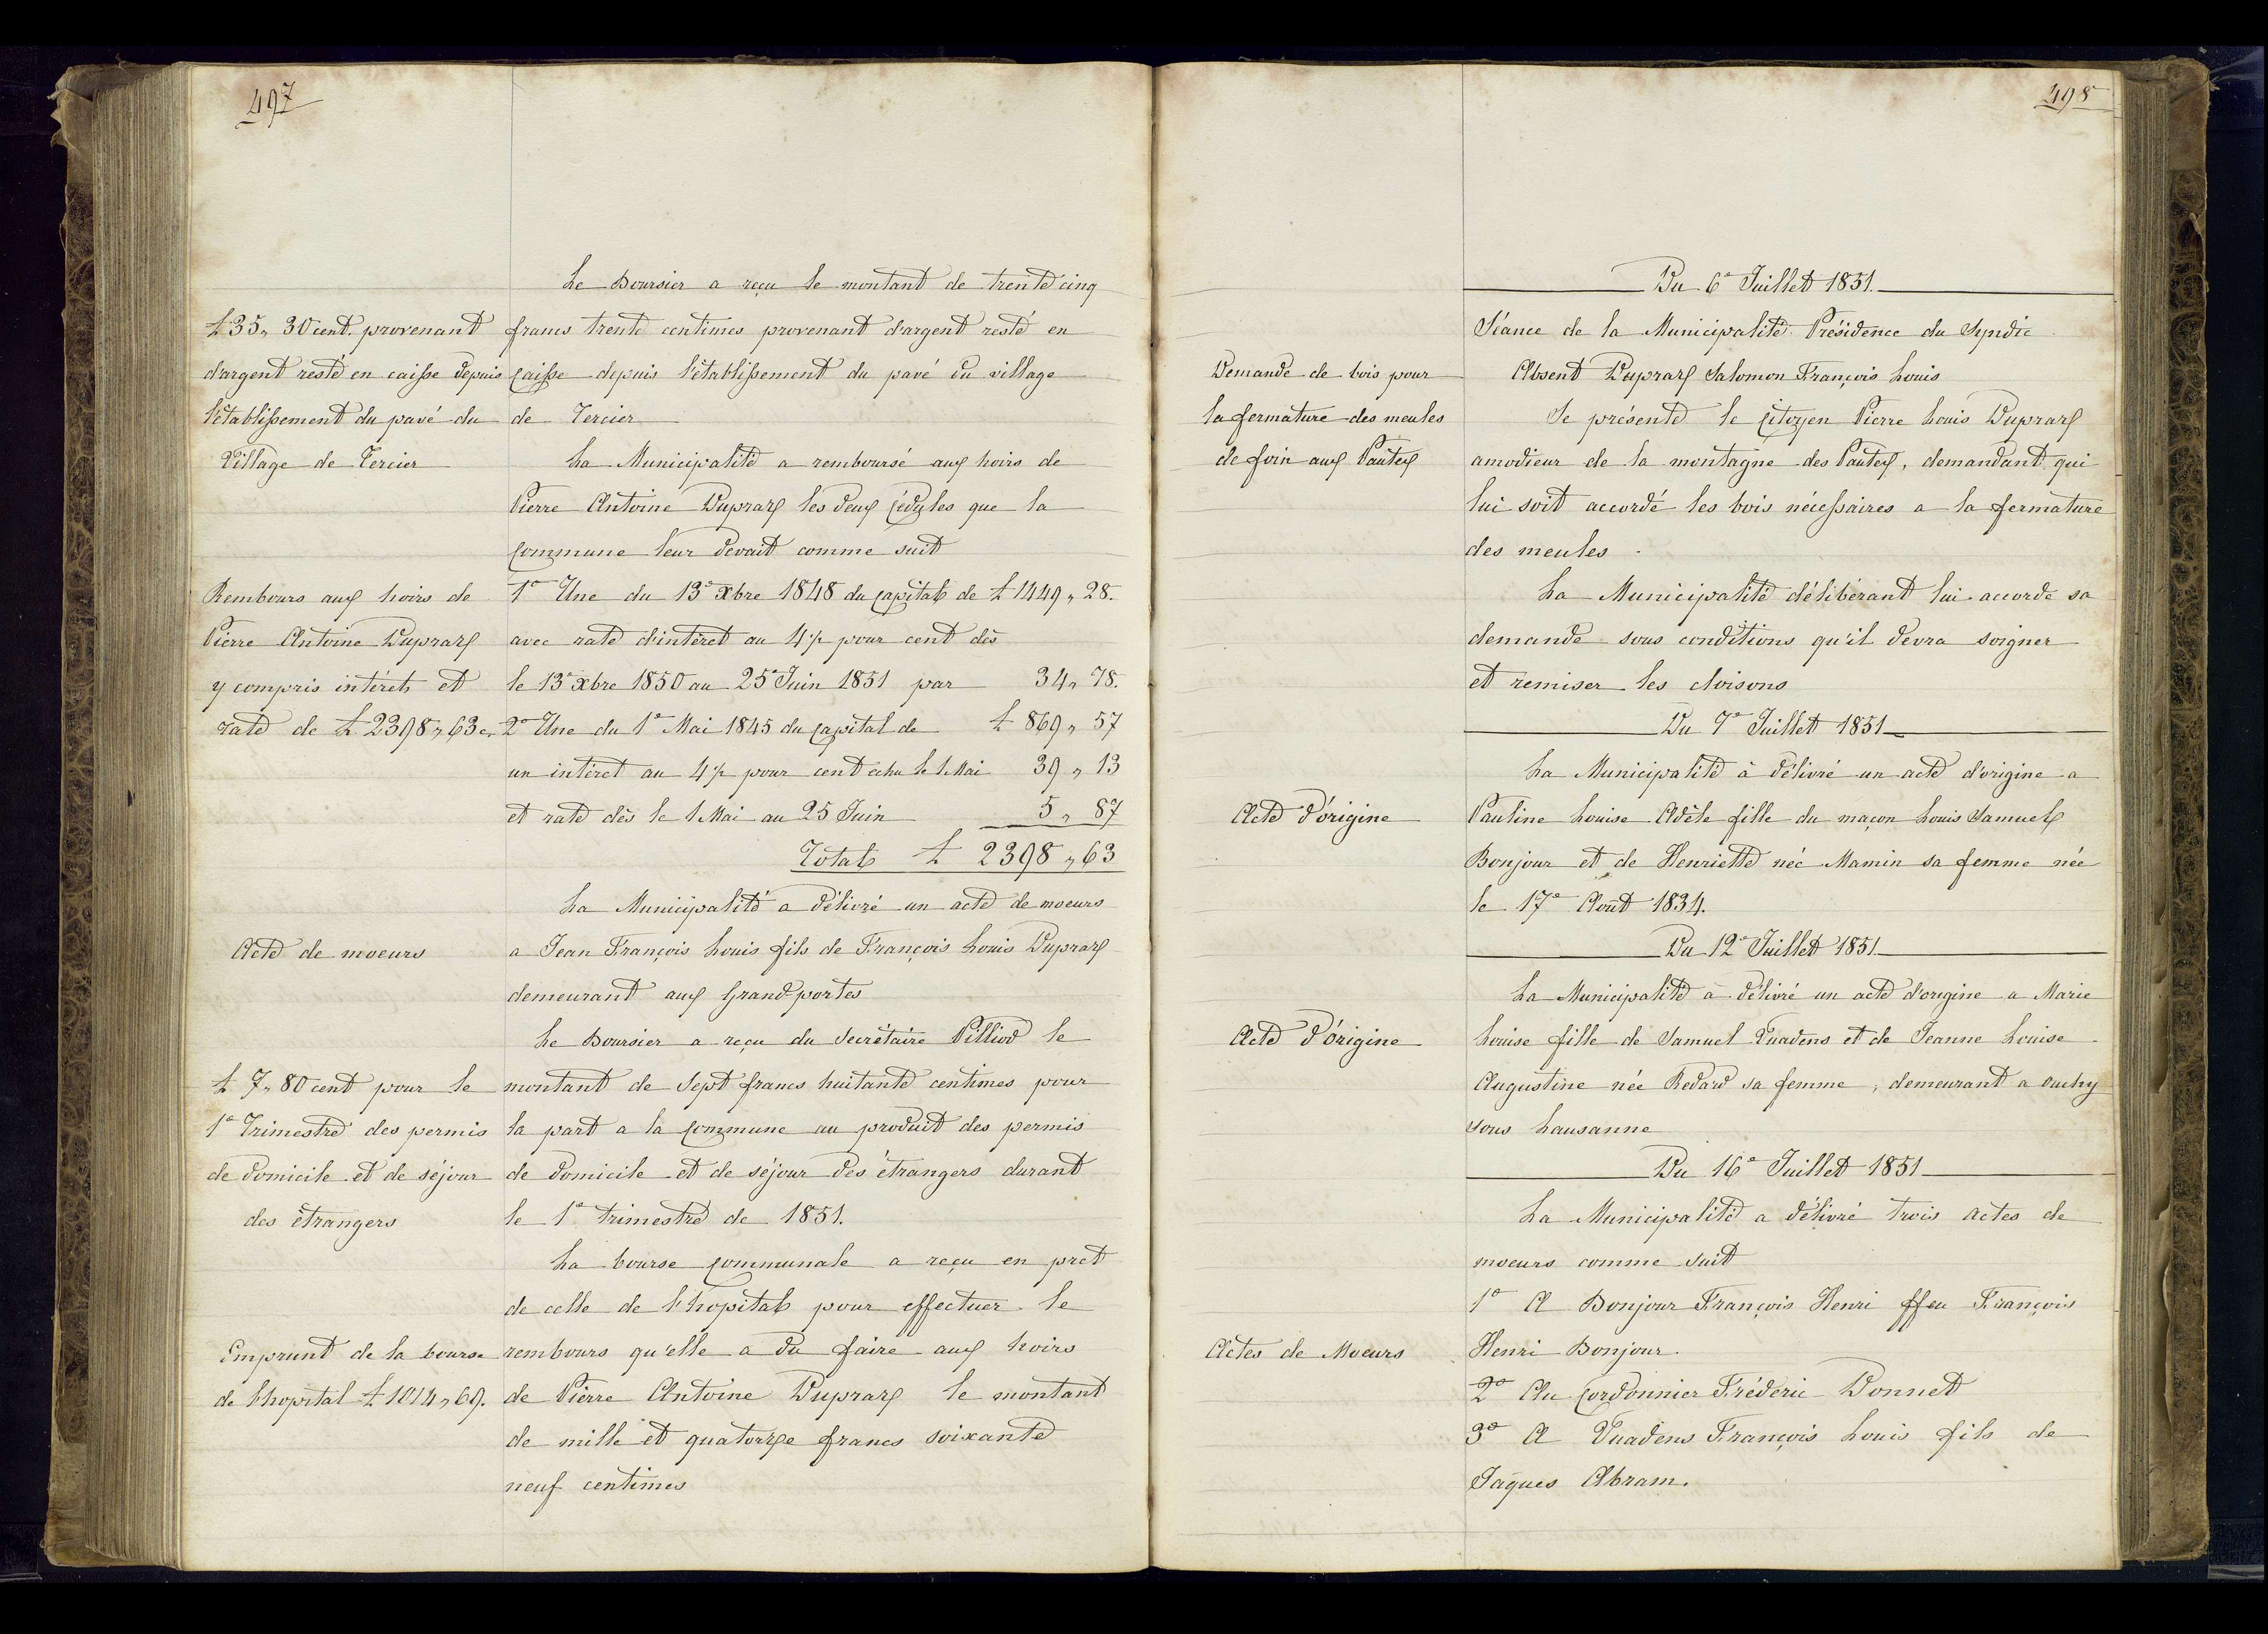 497
Le Boursier a reçu le montant de trente cinq
£ 35 " 30 cent. provenant
d'argent resté en caisse depuis
l'établissement du pavé du
Village de Tercier
francs trente centimes provenant d'argent resté en
Caisse depuis l'établissement du pavé du village
de Tercier
La Municipalité a remboursé aux hoirs de
Pierre Antoine Dupraz les deux Cédules que la
Commune leur devait comme suit
Rembours aux hoirs de
Pierre Antoine Dupraz
y compris intérêts et
rate de £ 2398 " 63 c.
1° Une du 13e Xbre 1848 du Capital de £ 1449 " 28.
avec rate d'intéret au 4 1/2 pour cent dès
le 13e Xbre 1850 au 25e Juin 1851 par 34 " 78.
2° Une du 1e Mai 1845 du Capital de £ 869 " 57
un intéret au 4 1/2 pour cent échu le 1 Mai 39 " 13
et rate dès le 1 Mai au 25 Juin 5 " 87
Total £ 2398 " 63
La Municipalité a délivré un acte de moeurs
Acte de moeurs
a Jean François Louis fils de François Louis Dupraz
demeurant aux Grand portes
Le Boursier a reçu du Secrétaire Pilliod le
£ 7 " 80 cent pour le
1e Trimestre des permis
de domicile et de séjour
des étrangers
montant de Sept francs huitante centimes pour
la part a la Commune au produit des permis
de domicile et de séjour des étrangers durant
le 1e trimestre de 1851.
La bourse Communale a reçu en pret
de celle de l'hopital pour effectuer le
Emprunt de la bourse
de l'hopital £ 1014 " 69.
rembours qu'elle a du faire aux hoirs
de Pierre Antoine Dupraz le montant
de mille et quatorze francs soixante
neuf centimes
498
Du 6e Juillet 1851.
Séance de la Municipalité Présidence du Syndic
Absent Dupraz Salomon François Louis
Demande de bois pour
la fermature des meules
de foin aux Pautex
Se présente le Citoyen Pierre Louis Dupraz
amodieur de la montagne des Pautex, demandant qui
lui soit accordé les bois nécessaires a la fermature
des meules.
La Municipalité délibérant lui accorde sa
demande sous conditions qu'il devra soigner
et remiser les cloisons
Du 7e Juillet 1851
La Municipalité à délivré un acte d'origine a
Acte d'origine
Pauline Louise Adèle fille du maçon Louis Samuel
Bonjour et de Henriette néé Mamin sa femme née
le 17e Août 1834.
Du 12e Juillet 1851
La Municipalité à délivré un acte d'origine a Marie
Acte d'Origine
Louise fille de Samuel Vuadens et de Jeanne Louise
Augustine née Redard sa femme, demeurant a ouchy
sous Lausanne
Du 16e Juillet 1851
La Municipalité a délivré trois actes de
moeurs comme suit
1° A Bonjour François Henri ffeu François
Actes de Moeurs
Henri Bonjour.
2° Au Cordonnier Fréderic Donnet
3° A Vuadens François Louis fils de
Jaques Abram.